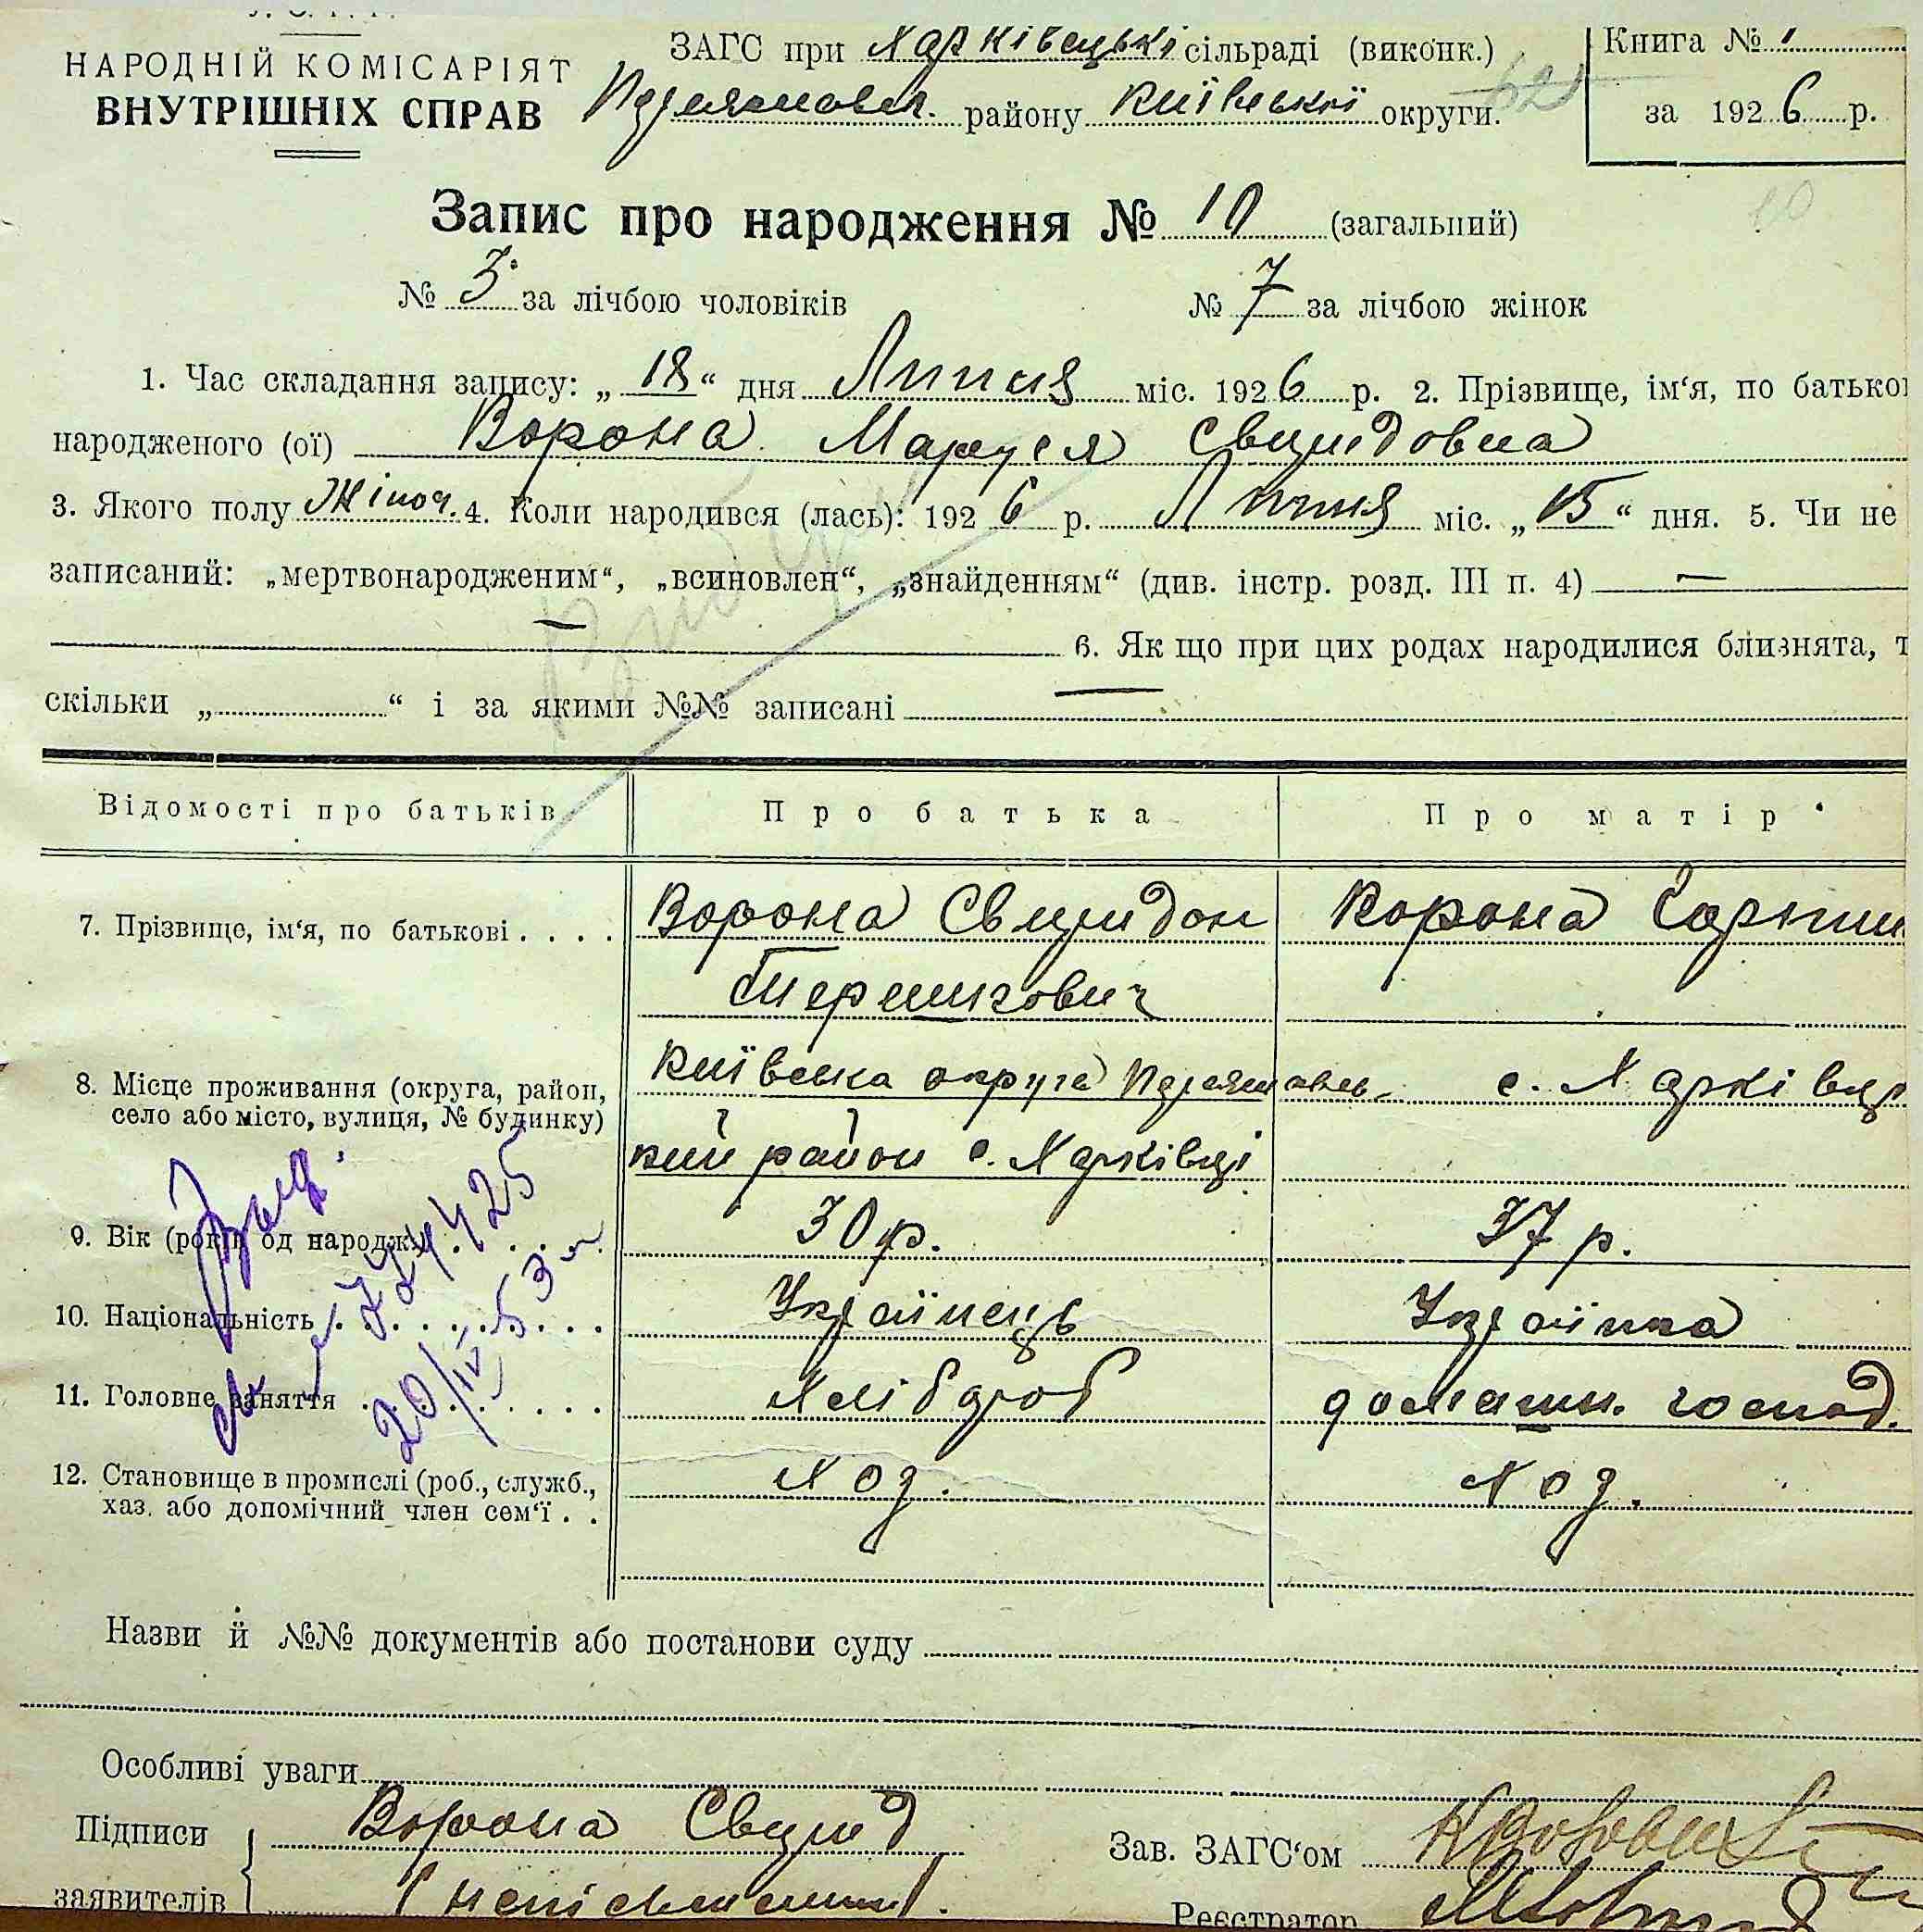 НАРОДНІЙ КОМІСАРІЯТ
ВНУТРІШНІХ СПРАВ
ЗАГС при Харківецькі сільраді (виконк.)
району Київської округи.
62
Книга № 1
за 1926 р.
Запис про народження № 10 (загальний)
10
№ 3 за лічбою чоловіків № 7 за лічбою жінок
1. Час складання запису: „18“ дня Липня міс. 1926 р. 2. Прізвище, ім‘я, по батько
народженого (ої) Ворона Маруся Свиридовна
3. Якого полу Жіноч. 4. Коли народився (лась): 1926 р. Липня міс. „15“ дня. 5. Чи не
записаний: „мертвонародженим“, „всиновлен“, „знайденням“ (див. інстр. розд. III п. 4) —
— 6. Як що при цих родах народилися близнята, т
скільки „ “ і за якими №№ записані —
Відомості про батьків Про батька Про матір
7. Прізвище, ім‘я, по батькові . . . . Ворона Свиридон Ворона
Терешкович
8. Місце проживання (округа, район, Київська округа с. Харківці
село або місто, вулиця, № будинку) кий район с. Харківці
9. Вік (років од народж.) . . . 30 р. 37 р.
10. Національність . . . . . . . Українець Українка
11. Головне заняття . . . . . . Хлібороб домашн. господ.
12. Становище в промислі (роб., служб., Хоз. Хоз.
хаз. або допомічний член сем‘ї . .
20/IV 53
Назви й №№ документів або постанови суду
Особливі уваги
Підписи Ворона Свирид Зав. ЗАГС‘ом
заявителів Реєстратор